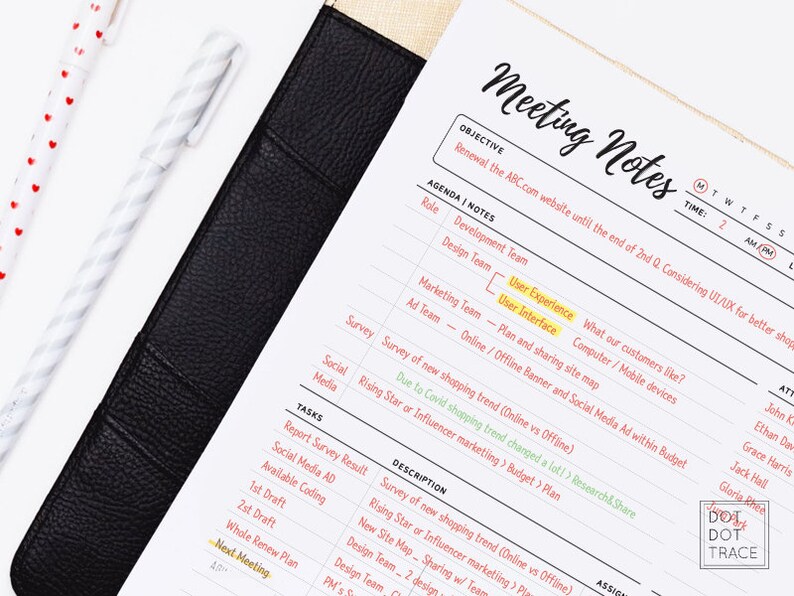 Meeting Notes
M T W T F S S
TIME: 2 AM/PM
OBJECTIVE
Renewal the ABC.com website until the end of 2nd Q. Considering UI/UX for better
AGENDA | NOTES
Role
Development Team
Design Team
User Experience What our customers like?
User Interface Computer / Mobile devices
Marketing Team — Plan and sharing site map
Ad Team — Online / Offline Banner and Social Media Ad within Budget
Survey
Survey of new shopping trend (Online vs Offline)
Due to Covid shopping trend changed a lot! > Research&Share
Social
Media
Rising Star or Influencer marketing > Budget > Plan
John
Ethan
Grace Harris
Jack Hall
Gloria Rhee
Park
TASKS
DESCRIPTION
Report Survey Result
Survey of new shopping trend (Online vs Offline)
Social Media AD
Rising Star or Influencer marketing > Plan
Available Coding
New Site Map _ Sharing w/ Team
1st Draft
Design Team _ 2
2st Draft
Design Team
Whole Renew Plan
PM's
Next Meeting
DOT
DOT
TRACE